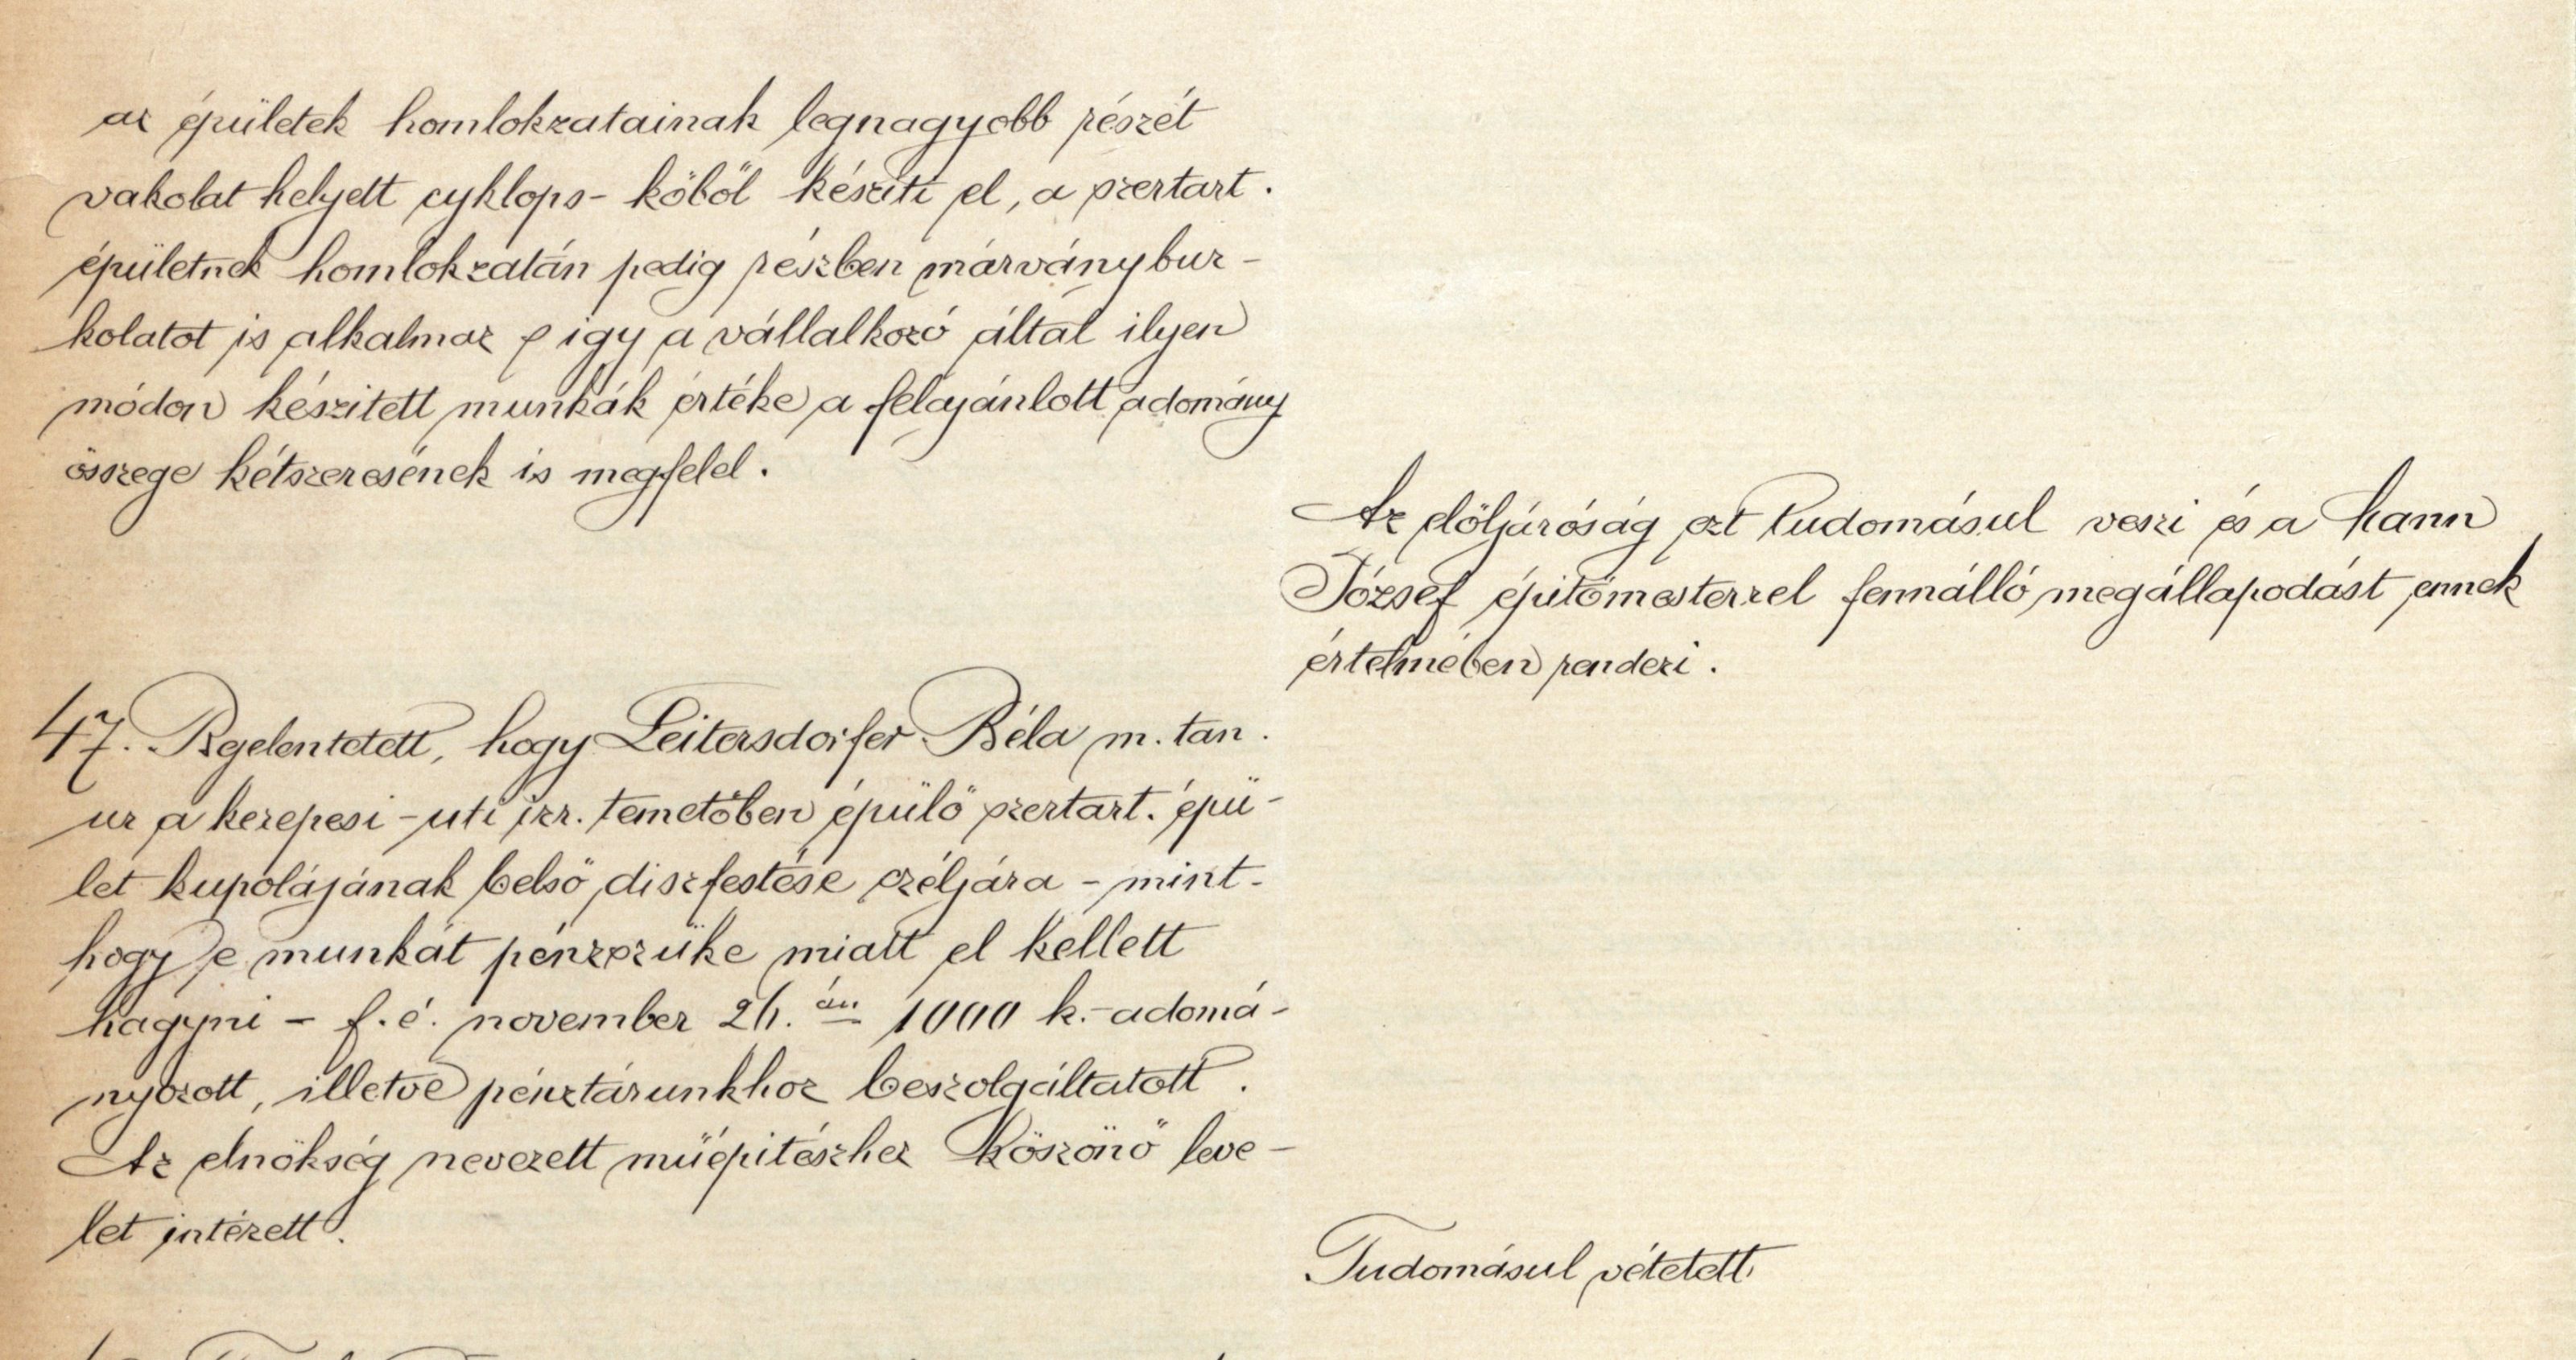 az épületek homlokzatainak legnagyobb részét
vakolat helyett cyklops-kőből késziti el, a szertart.
épületnek homlokzatán pedig részben márványbur-
kolatot is alkalmaz s igy a vállalkozó által ilyen
módon készitett munkák értéke a felajánlott adomány
összege kétszeresének is megfelel.
Az elöljáróság ezt tudomásul veszi és a Kann
József épitőmesterrel fennálló megállapodást ennek
értelmében rendezi.
47. Bejelentetett, hogy Leitersdorfer Béla m. tan.
ur a kerepesi-uti izr. temetőben épülő szertart. épü-
let kupolájának belső diszfestése czéljára - mint-
hogy e munkát pénzszüke miatt el kellett
hagyni - f. é. november 26.án 1000 k.-adomá-
nyozott, illetve pénztárunkhoz beszolgáltatott.
Az elnökség nevezett müépitészhez köszönő leve-
let intézett.
Tudomásul vétetett.